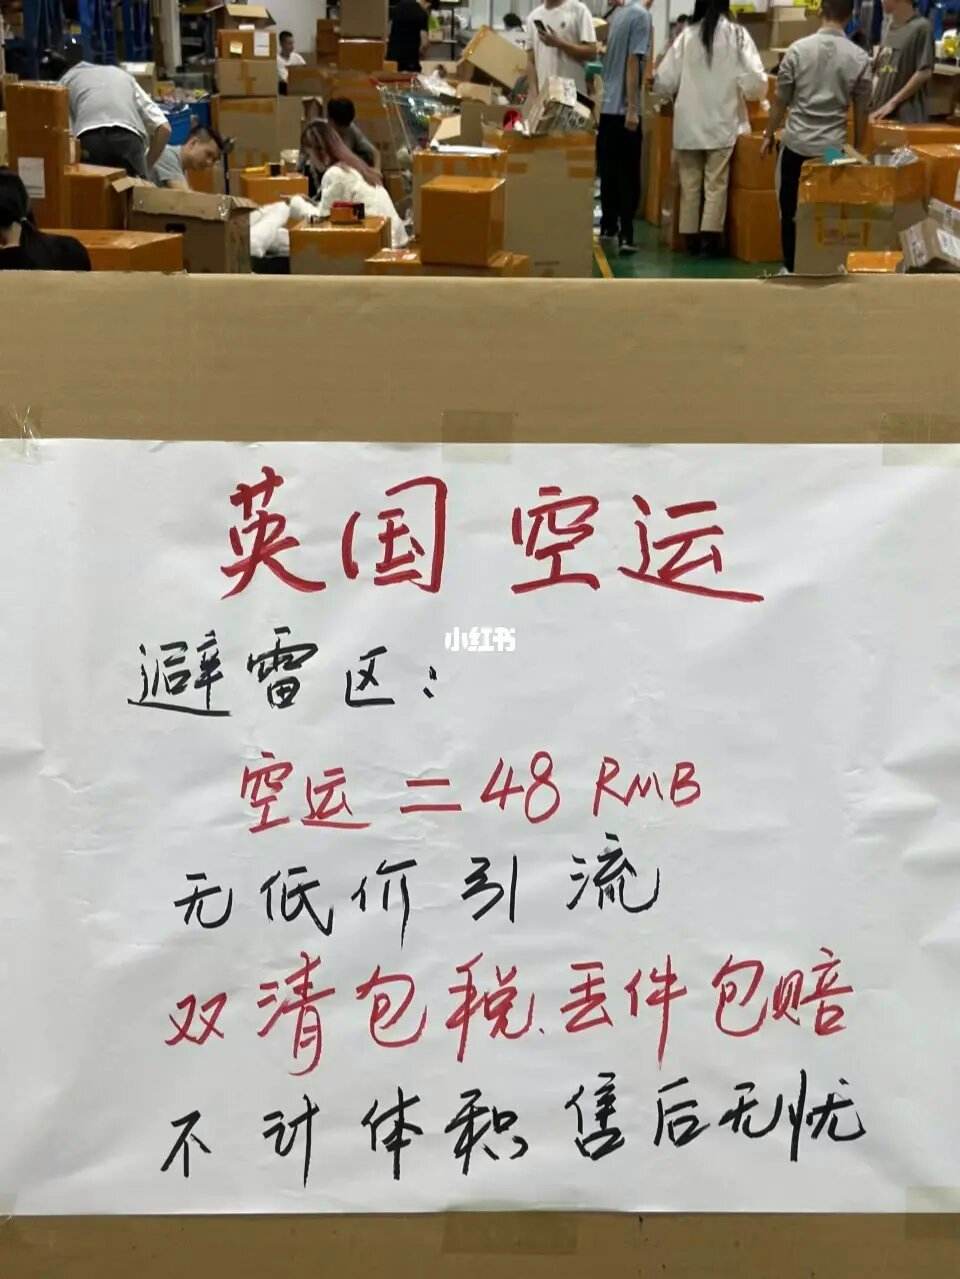 英国空运
小红书
避雷区：
空运二48RMB
无低价引流
双清包税、丢件包赔
不计体积售后无忧